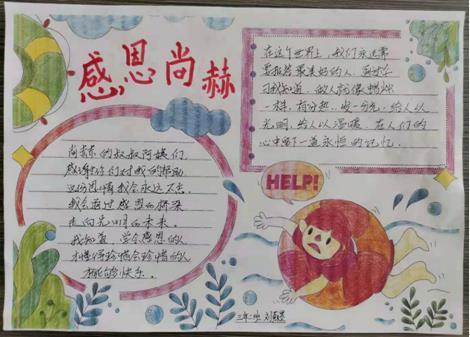 感恩尚赫
在这个世界上，我们永远需
要报答最美好的人，
一样，有分热，发一分光，给人以
光明，给人以温暖，在人们的
心中留一盏永恒的记忆.
尚赫的叔叔阿姨们.
感谢你们对我的帮助
这份恩情我会永远不忘.
我会通过感恩的桥梁
走向光明的未来.
我知道，学会感恩的人
才懂得珍惜会珍惜的人
才能够快乐.
HELP!